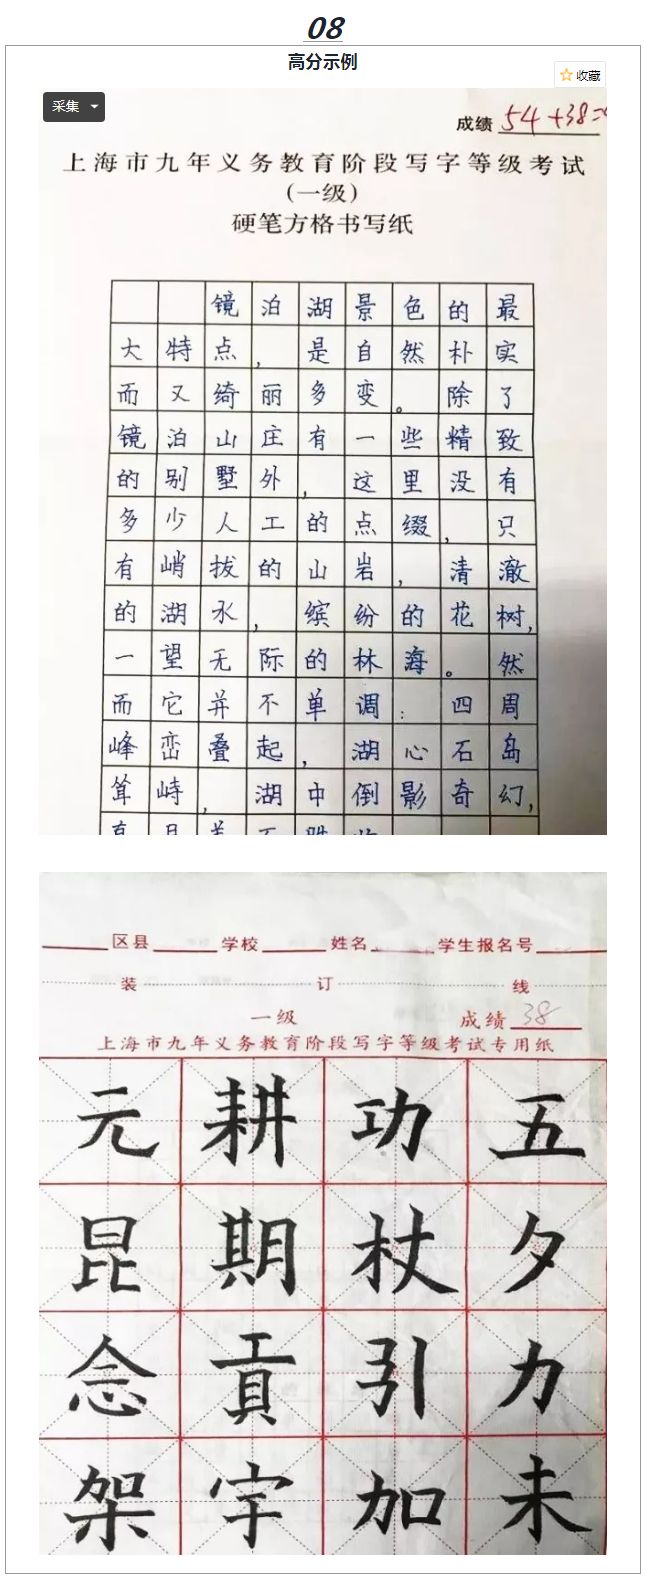 08
高分示例
收藏
采集
成绩 54+38=
上海市九年义务教育阶段写字等级考试
(一级)
硬笔方格书写纸
镜泊湖景色的最
大特点，是自然朴实
而又绮丽多变。除了
镜泊山庄有一些精致
的别墅外，这里没有
多少人工的点缀，只
有峭拔的山岩，清澈
的湖水，缤纷的花树，
一望无际的林海。然
而它并不单调：四周
峰峦叠起，湖心石岛
耸峙，湖中倒影奇幻，
区县 学校 姓名 学生报名号
装 订 线
一级 成绩 38
上海市九年义务教育阶段写字等级考试专用纸
元耕功五
昆期杖夕
念贡引力
架宇加未